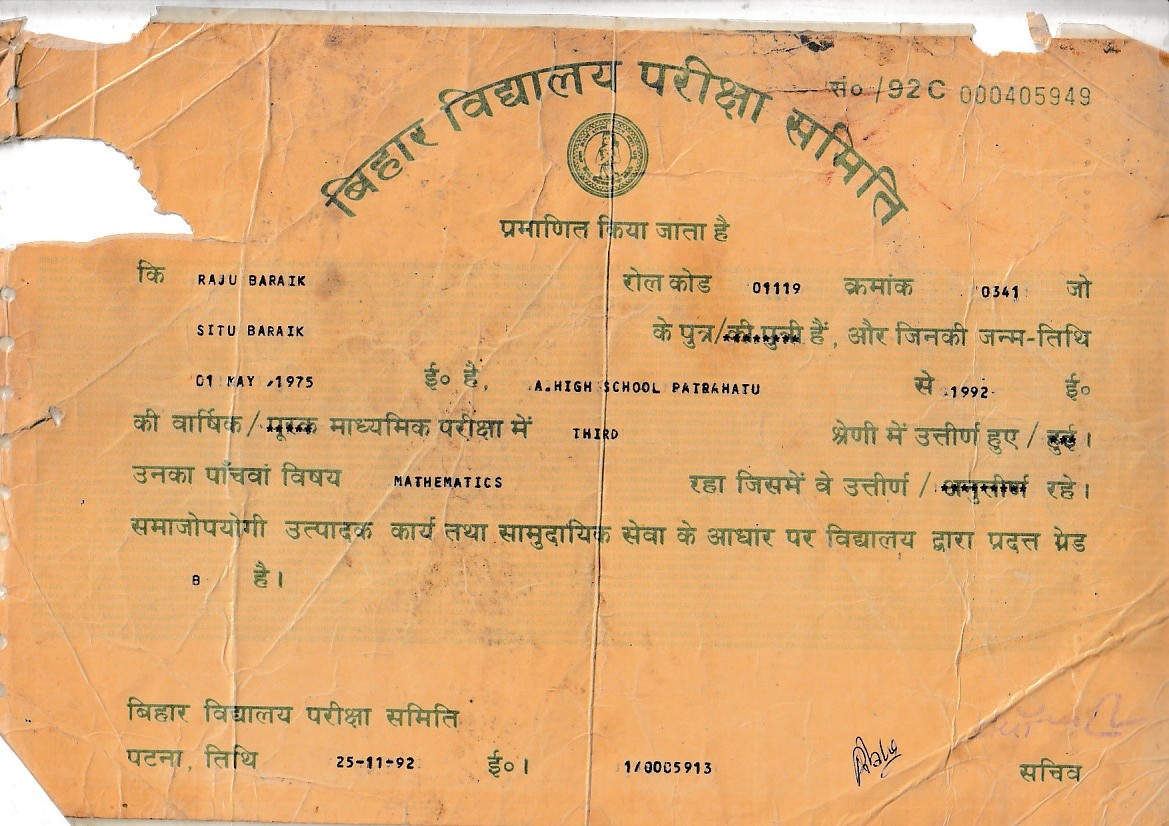 सं० /92C 000405949
बिहार विद्यालय परीक्षा समिति
प्रमाणित किया जाता है
कि RAJU BARAIK रोल कोड 01119 क्रमांक 0341 जो
SITU BARAIK के पुत्र/की पुत्री हैं, और जिनकी जन्म-तिथि
01 MAY ,1975 ई० है, A.HIGH SCHOOL PATRAHATU से 1992 ई०
की वार्षिक/पूरक माध्यमिक परीक्षा में THIRD श्रेणी में उत्तीर्ण हुए / हुई ।
उनका पाँचवां विषय MATHEMATICS रहा जिसमें वे उत्तीर्ण / अनुत्तीर्ण रहे ।
समाजोपयोगी उत्पादक कार्य तथा सामुदायिक सेवा के आधार पर विद्यालय द्वारा प्रदत्त ग्रेड
B है ।
बिहार विद्यालय परीक्षा समिति
पटना, तिथि 25-11-92 ई० । 1/0005913 सचिव